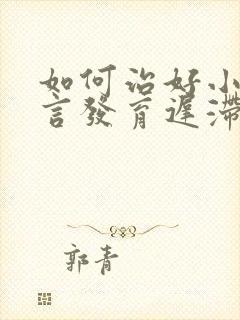 如何治好小
言發育遲滯
郭青